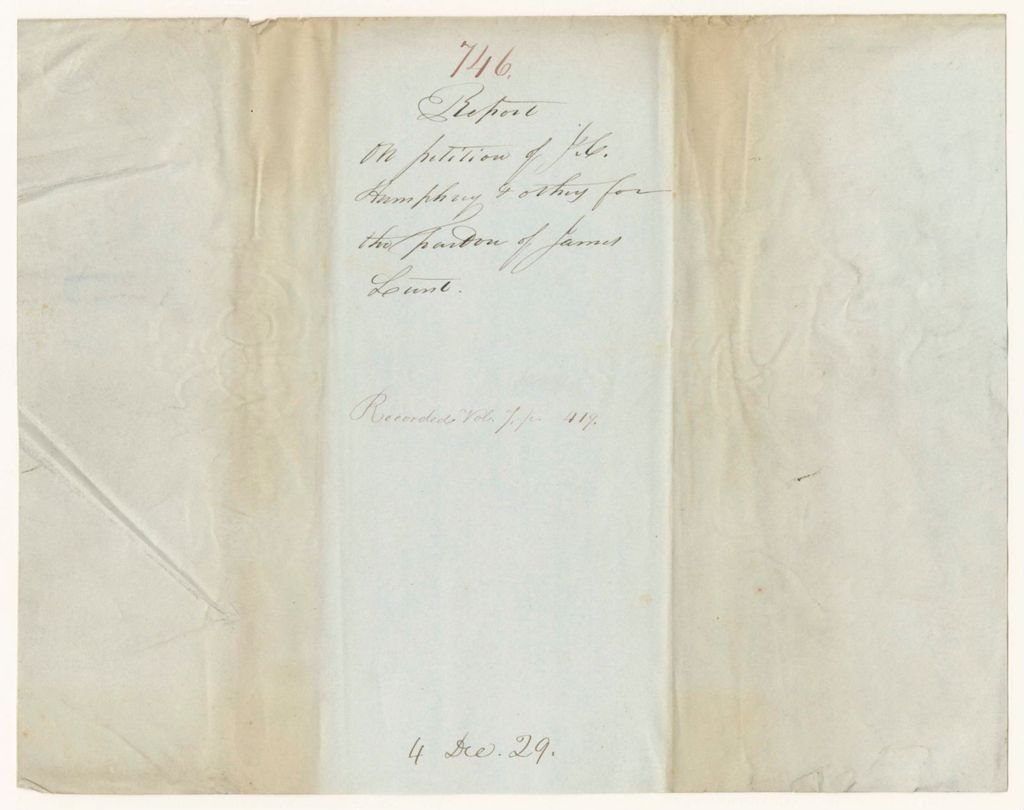 746.
Report
On petition of J. C.
Humphrey & others for
the pardon of James
Lunt.
Recorded Vol. 7. p. 419.
4 Dec. 29.